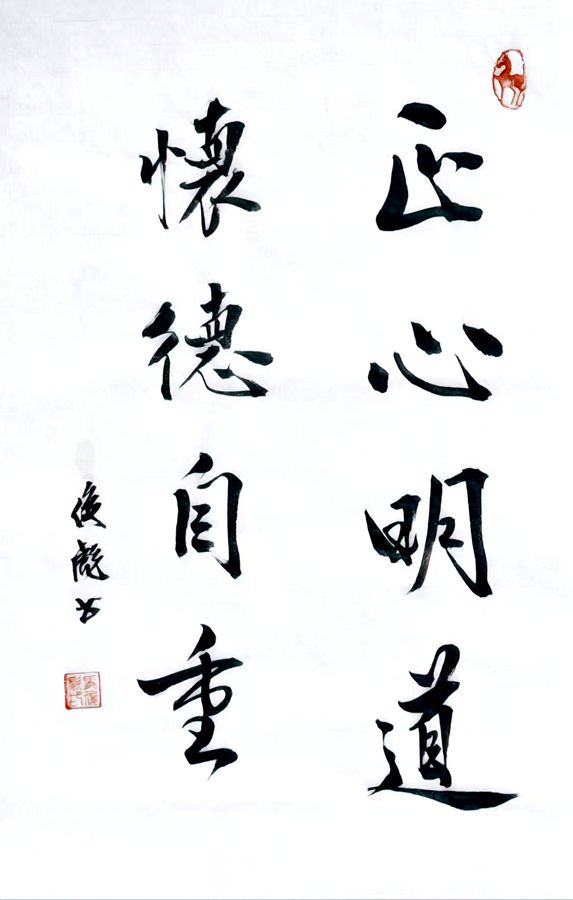 正心明道
懷德自重
侯彪书